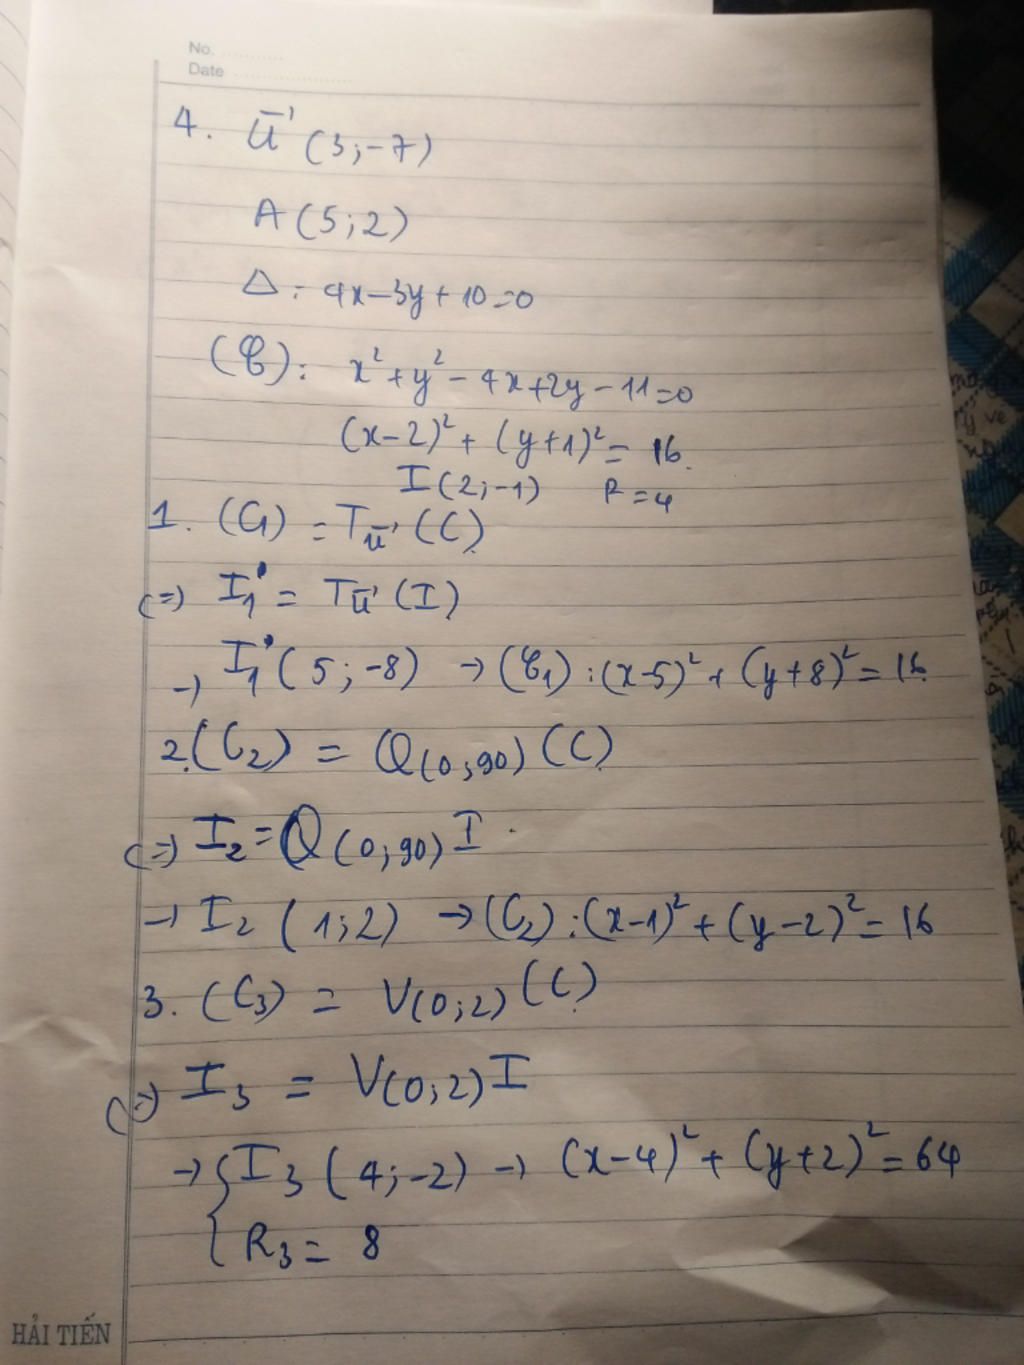 No. ............
Date .......................
4. u⃗ (3;-7)
A(5;2)
Δ: 4x-3y+10=0
(C): x²+y²-4x+2y-11=0
(x-2)²+(y+1)²=16.
I(2;-1) R=4
1. (C1) = Tu⃗ (C)
(=) I1 = Tu⃗ (I)
→ I1 (5;-8) → (C1): (x-5)²+(y+8)²=16
2. (C2) = Q(0;90) (C)
(=) I2 = Q(0;90) I.
→ I2 (1;2) → (C2): (x-1)²+(y-2)²=16
3. (C3) = V(0;2) (C)
(=) I3 = V(0;2) I
→ { I3 (4;-2) → (x-4)²+(y+2)²=64
R3 = 8
HẢI TIẾN